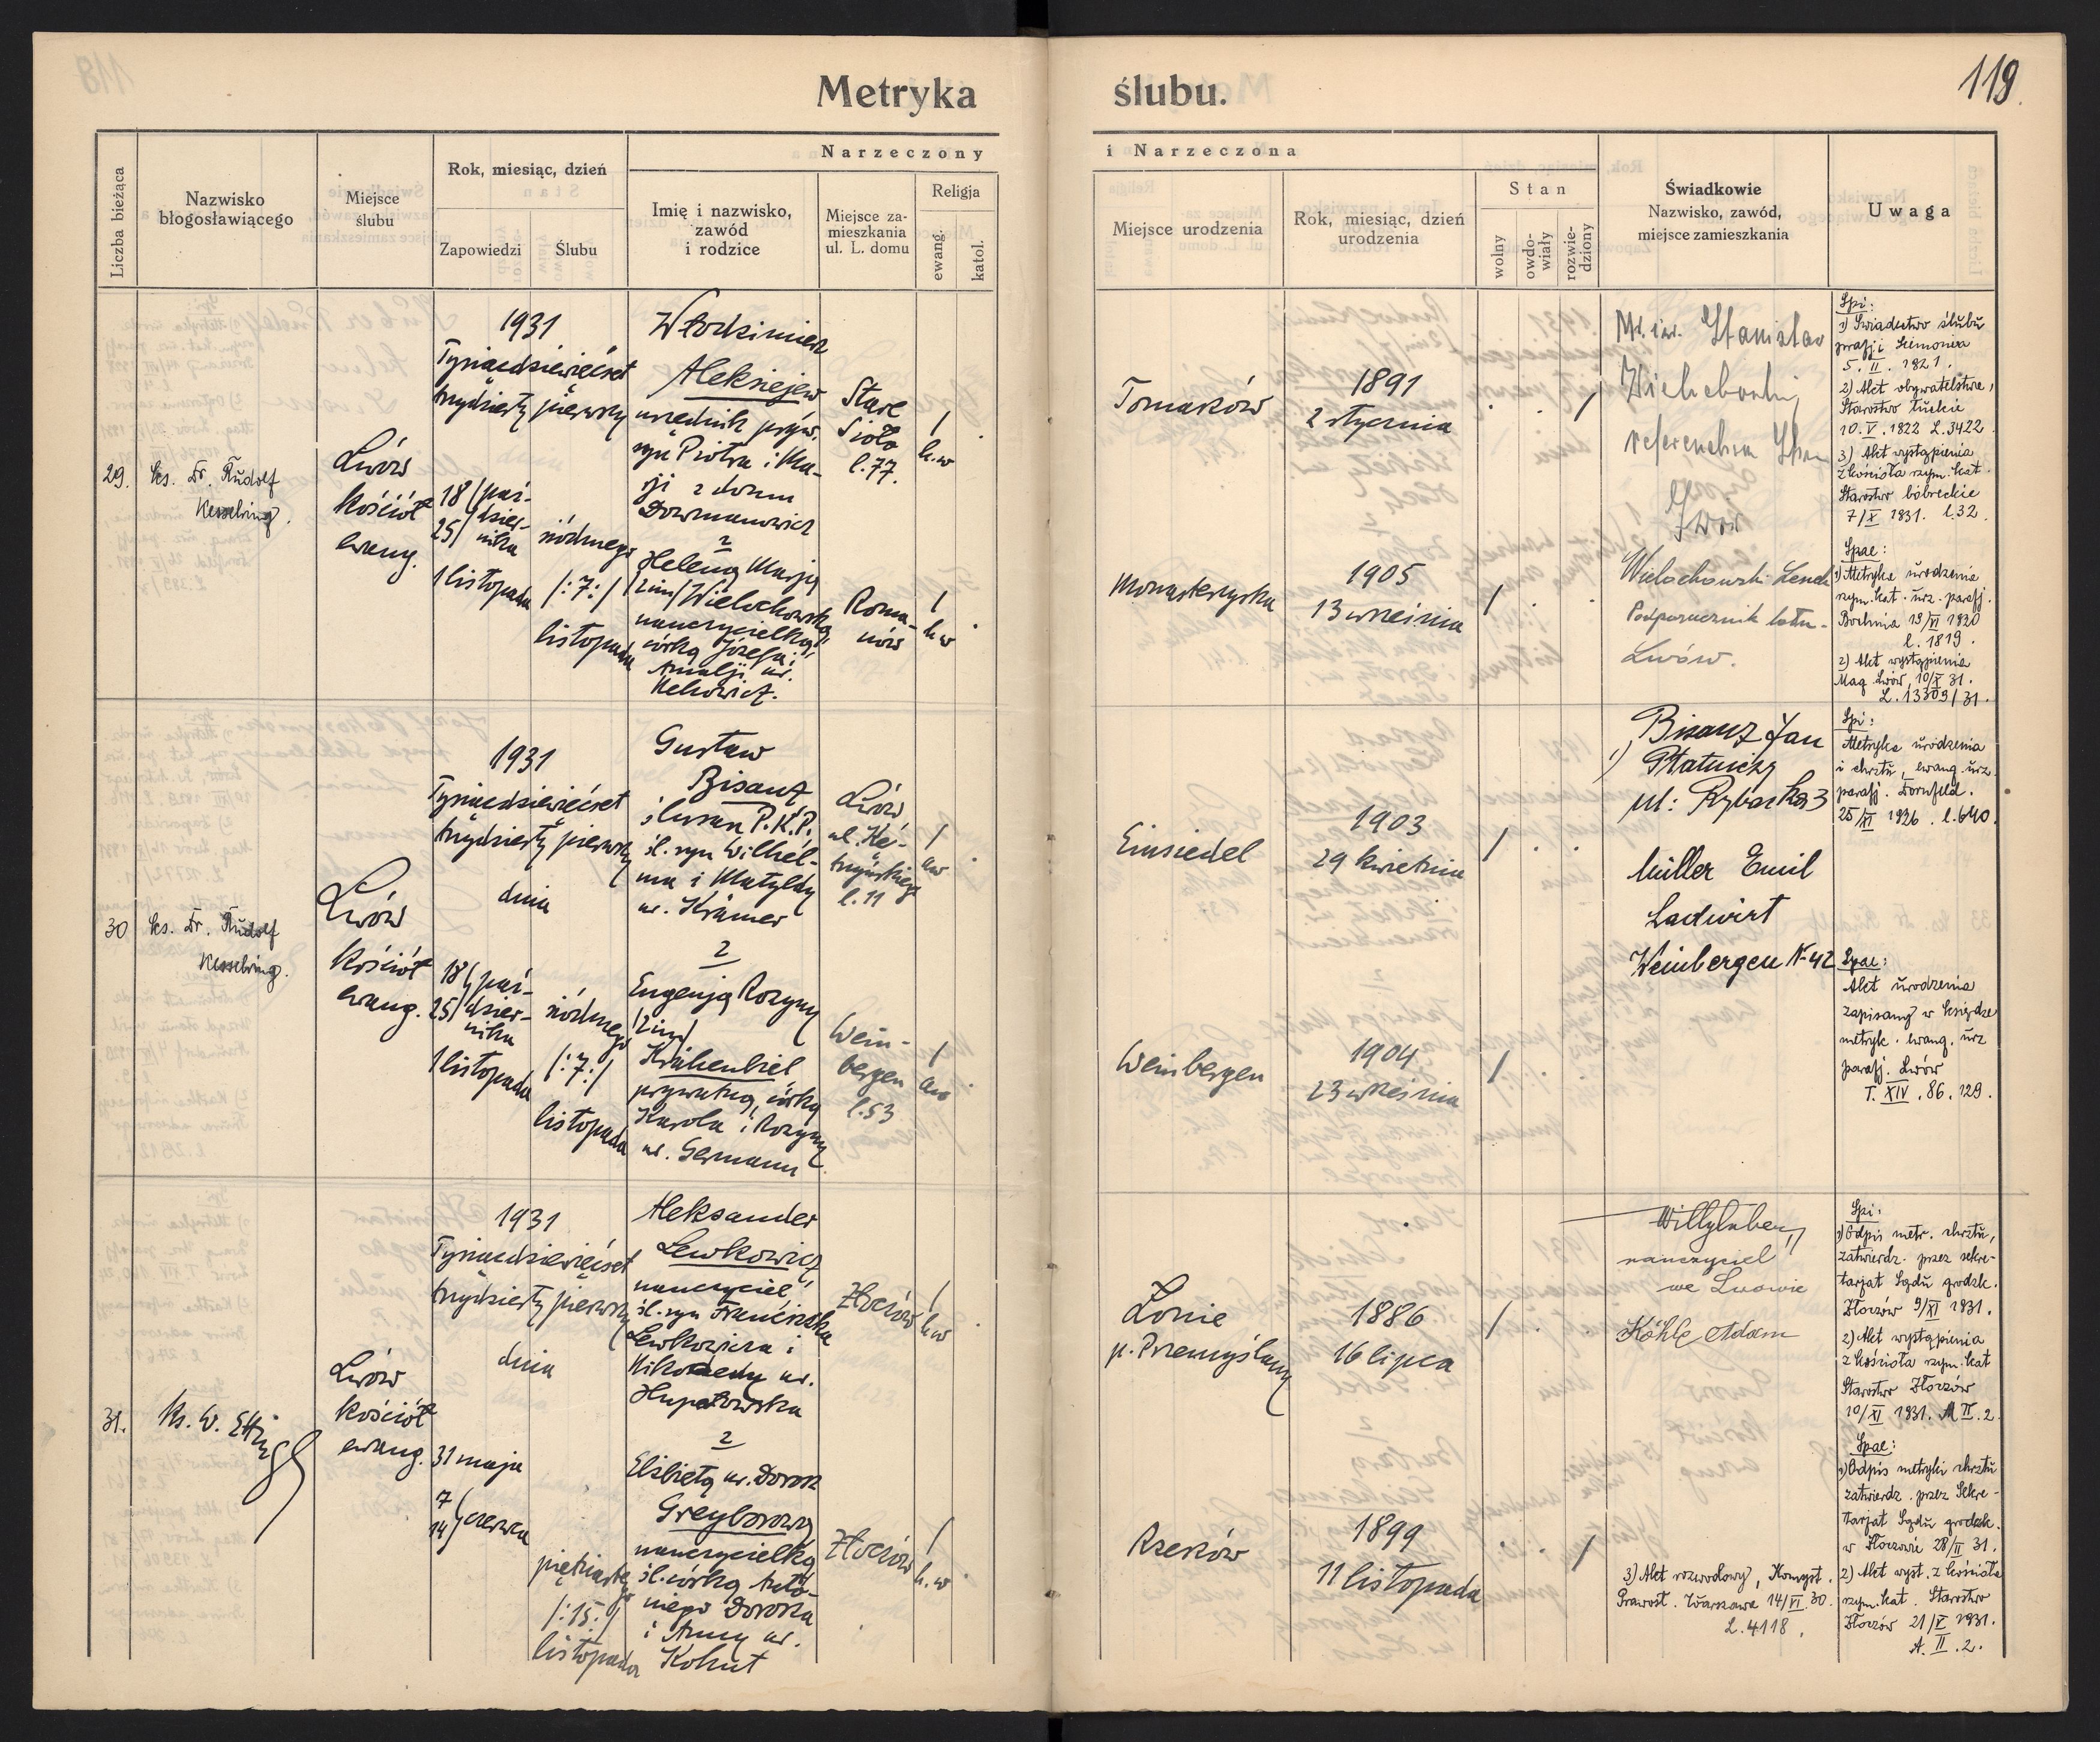 Metryka ślubu.
119.
Liczba bieżąca
Nazwisko
błogosławiącego
Miejsce
ślubu
Rok, miesiąc, dzień
Zapowiedzi
Ślubu
Narzeczony
Imię i nazwisko,
zawód
i rodzice
Miejsce za-
mieszkania
ul. L. domu
Religja
ewang.
katol.
i Narzeczona
Miejsce urodzenia
Rok, miesiąc, dzień
urodzenia
Stan
wolny
owdo-
wiały
rozwie-
dziony
Świadkowie
Nazwisko, zawód,
miejsce zamieszkania
Uwaga
29.
ks. Dr. Rudolf
Kesselring.
Lwów
kościół
ewang.
1931
Tysiącdziewięćset
trzydziesty pierwszy
18/ paź-
25/ dzier-
nika
1 listopada
siódmego
/:7:/
listopada
Włodzimierz
Aleksiejew
urzędnik pryw.
syn Piotra i Ma-
rji z domu
Dowmanowicz
z
Heleną Marją
/2im/ Wielochowską
nauczycielką,
córką Józefa i
Amalji ur.
Stare
Sioło
l. 77.
/
h.w
Roma-
nów
/
h.w
Tomaków
1891
2 stycznia
/
Monasterzyska
1905
13 września
/
Stanisław
Lwów
Wielochowski Leszek
Podporucznik
Lwów.
Spi:
1) Świadectwo ślubu
parafji
5. II. 1921.
2) Akt obywatelstwa,
Starostwo łuckie
10. V. 1922 L. 3422
3) Akt wystąpienia
z kościoła rzym. kat.
Starostwo bóbreckie
7/X 1931. l. 32.
Spae:
1) Metryka urodzenia
rzym. kat. urz. parafj.
Bochnia 19/VI 1930
l. 1819.
2) Akt wystąpienia
Mag. Lwów, 10/X 31.
L. 13309/31.
30
ks. Dr. Rudolf
Kesselring.
Lwów
kościół
ewang.
1931
Tysiącdziewięćset
trzydziesty pierwszy
dnia
18/ paź-
25/ dzier-
nika
1 listopada
siódmego
/:7:/
listopada
Gustaw
Bisanz
ślusarz P.K.P.
śl. syn Wilhel-
ma i Matyldy
ur. Krämer
z
Eugenją Rozyną
/2im/
Krähenbiel
prywatną, córką
Karola i Rozyny
ur. Germann
Lwów,
ul. Kę-
trzyńskiego
l. 11
/
aw
Wein-
bergen
l. 53
/
aw
Einsiedel
1903
29 kwietnia
/
Weinbergen
1904
23 września
/
Bisanz Jan
ul: Rybacka 3
Müller Emil
Ladwirt
Weinbergen N. 42
Spi:
Metryka urodzenia
i chrztu, ewang. urz.
parafj. Dornfeld.
25/XI 1926. l. 640.
Spae:
Akt urodzenia
zapisany w księdze
metryk. ewang. urz
parafj. Lwów
T. XIV. 86. 129.
31.
Lwów
kościół
ewang.
1931
Tysiącdziewięćset
trzydziesty pierwszy
dnia
31 maja
7
14/ czerwca
piętnastego
/:15:/
listopada
Aleksander
Lewkowicz
nauczyciel,
śl. syn Franciszka
Lewkowicza i
Nikodemy ur.
z
Elżbietą ur. Dorosz
Greyberową
nauczycielką
śl. córką Anto-
niego Dorosza
i Anny ur.
Kohut
Złoczów
/
h.w
Złoczów
/
h.w
Łonie
p. Przemyślany
1886
16 lipca
/
Rzeków
1899
11 listopada
/
nauczyciel
we Lwowie
Köhle Adam
3) Akt rozwodowy, Konsyst.
Prawosł. Warszawa 14/VI. 30.
L. 4118.
Spi:
1) Odpis metr. chrztu,
zatwierdz. przez sekre-
tarjat Sądu grodzk.
Złoczów 9/XI 1931.
2) Akt wystąpienia
z kościoła rzym. kat
Starostwo Złoczów
10/XI 1931. A II. 2.
Spae:
1) Odpis metryki chrztu
zatwierdz. przez Sekre-
tarjat Sądu grodzk.
w Złoczowie 28/II 31.
2) Akt wyst. z kościoła
rzym. kat. Starostwo
Złoczów 21/V 1931.
A. II. 2.